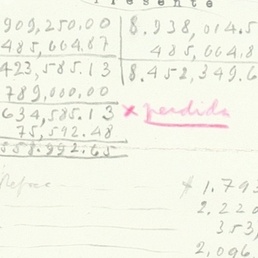 Presente
909,250.00 8.938,014.5
485,664.87 485,664.8
423,585.13 8.452,349.6
789,000.00
634,585.13 x perdida
75,592.48
558.992.65
$ 1.793
2.220
353,
2,096